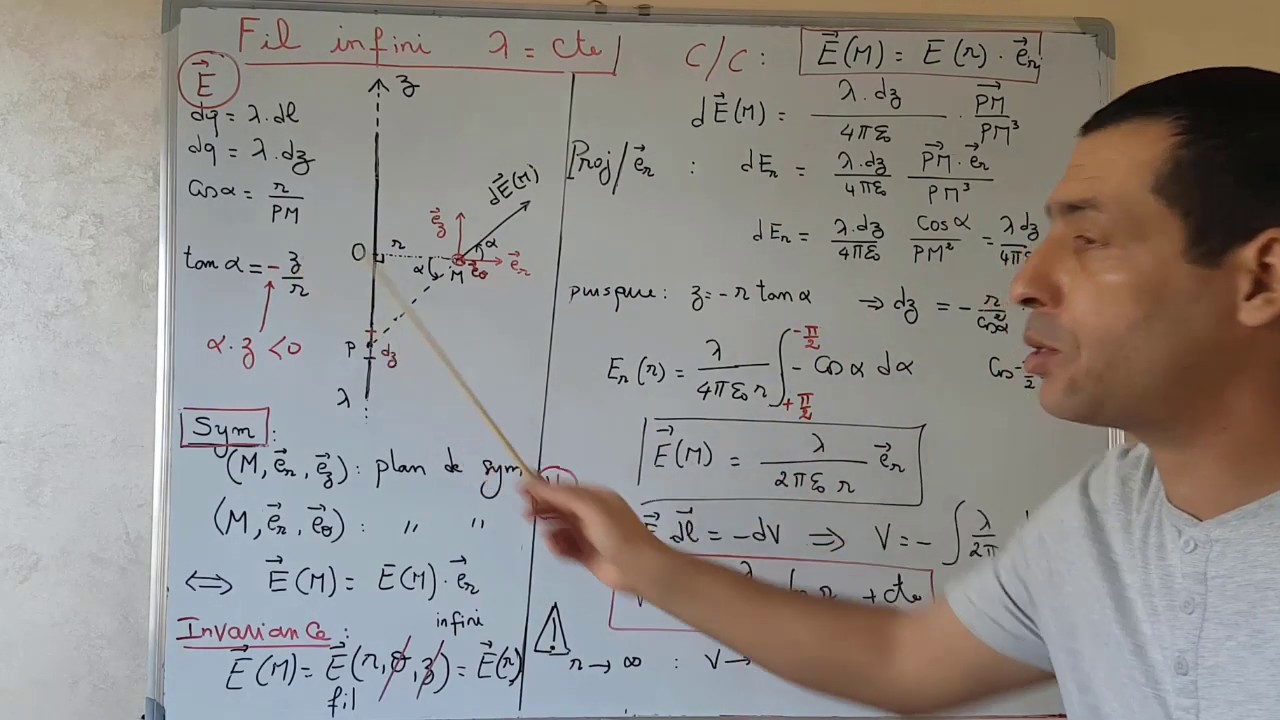 Fil infini λ = cte
E⃗
dq = λ.dl
dq = λ.dz
Cosα = r/PM
tanα = - z/r
α.z < 0
z
dE⃗(M)
e⃗z
α
O
r
α
M
e⃗θ
e⃗r
P
dz
λ
Sym :
(M, e⃗r, e⃗z) : plan de sym
(M, e⃗r, e⃗θ) : " "
⟺ E⃗(M) = E(M) · e⃗r
Invariance :
infini
E⃗(M) = E⃗(r, θ, z) = E⃗(r)
fil
C/C : E⃗(M) = E(r) · e⃗r
dE⃗(M) = λ.dz/4πε₀ · PM⃗/PM³
Proj/e⃗r : dEr = λ.dz/4πε₀ PM⃗ · e⃗r/PM³
dEr = λ.dz/4πε₀ Cosα/PM² = λdz
puisque : z = - r tanα ⟹ dz = - r/cos²α
Er(r) = λ/4πε₀ r ∫_{+π/2}^{-π/2} - Cosα dα
E⃗(M) = λ/2πε₀ r e⃗r
dl⃗ = -dV ⟹ V = - ∫ λ/2π
r + cte
⚠ r → ∞ : V →